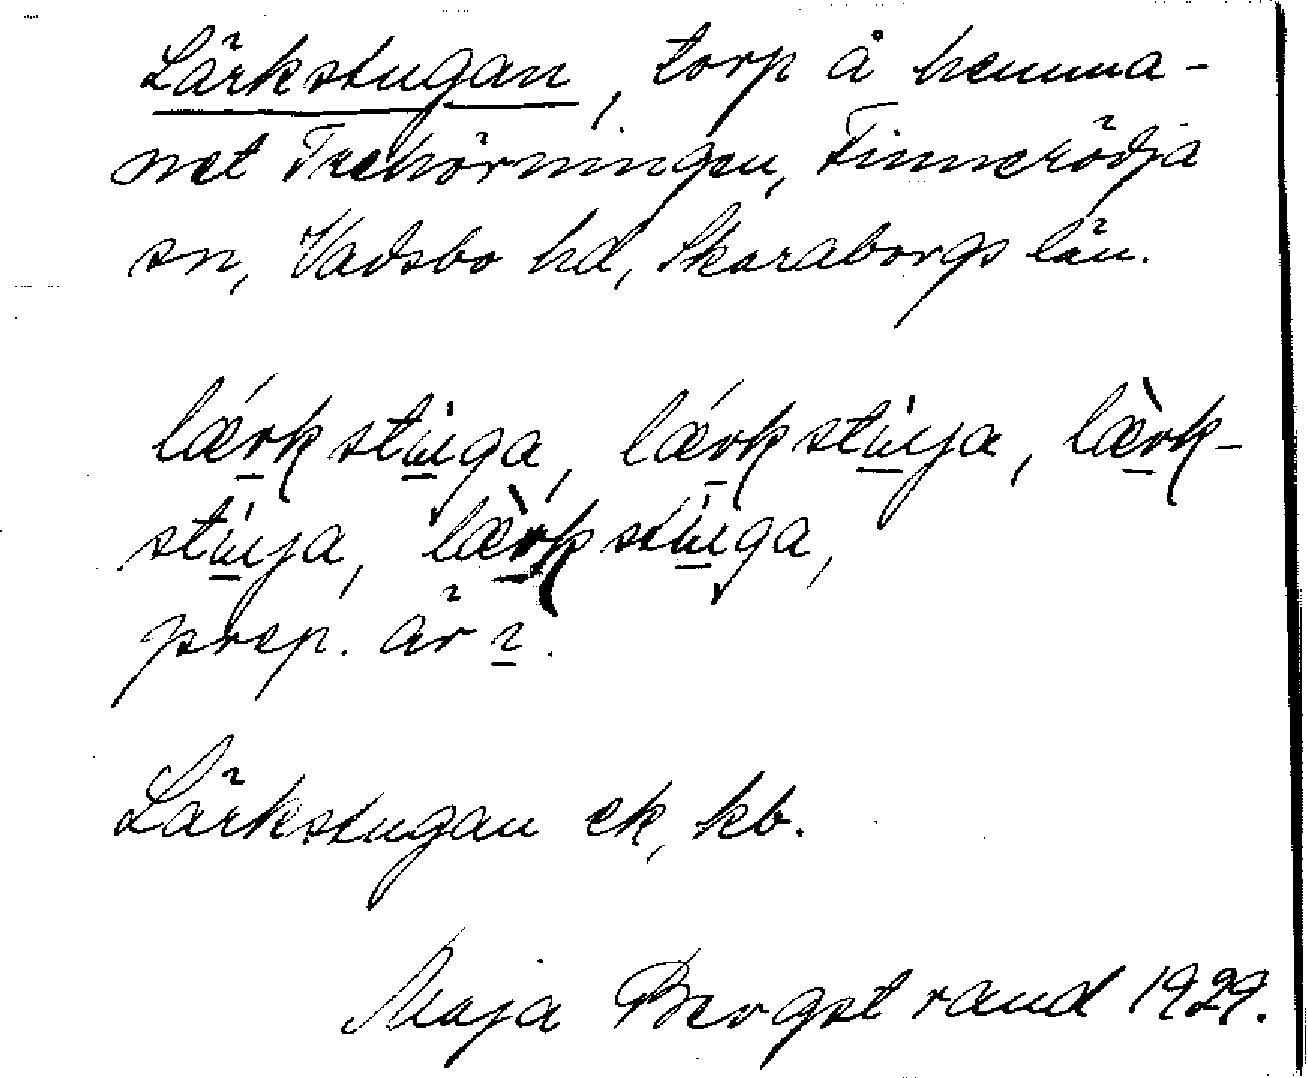 Lärkstugan, torp å hemma-
net Trehörningen, Finnerödja
sn, Vadsbo hd, Skaraborgs län.
lǽrkstu̇ga, lǽrkstu̇ja, læ̀rk-
stu̇ja, læ̀rkstu̇ga,
prep. är ı.
Lärkstugan ek, kb.
Maja Bergstrand 1929.